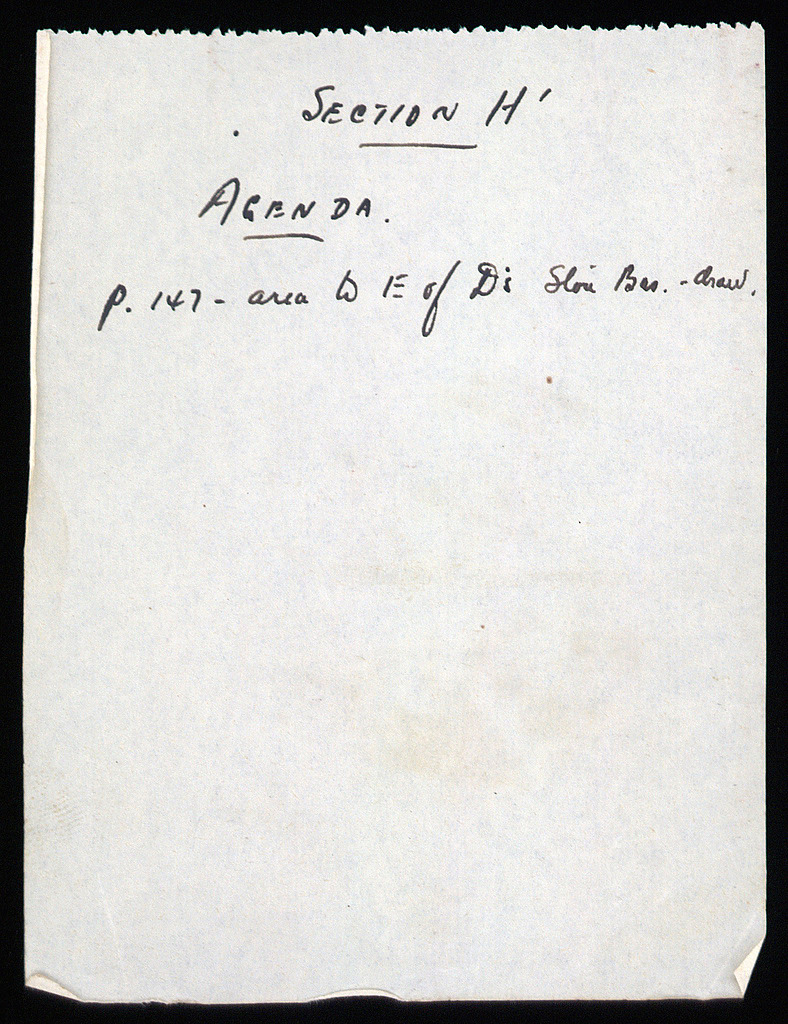 SECTION H'
AGENDA.
p. 147 - area to E of Di Bas. - draw.